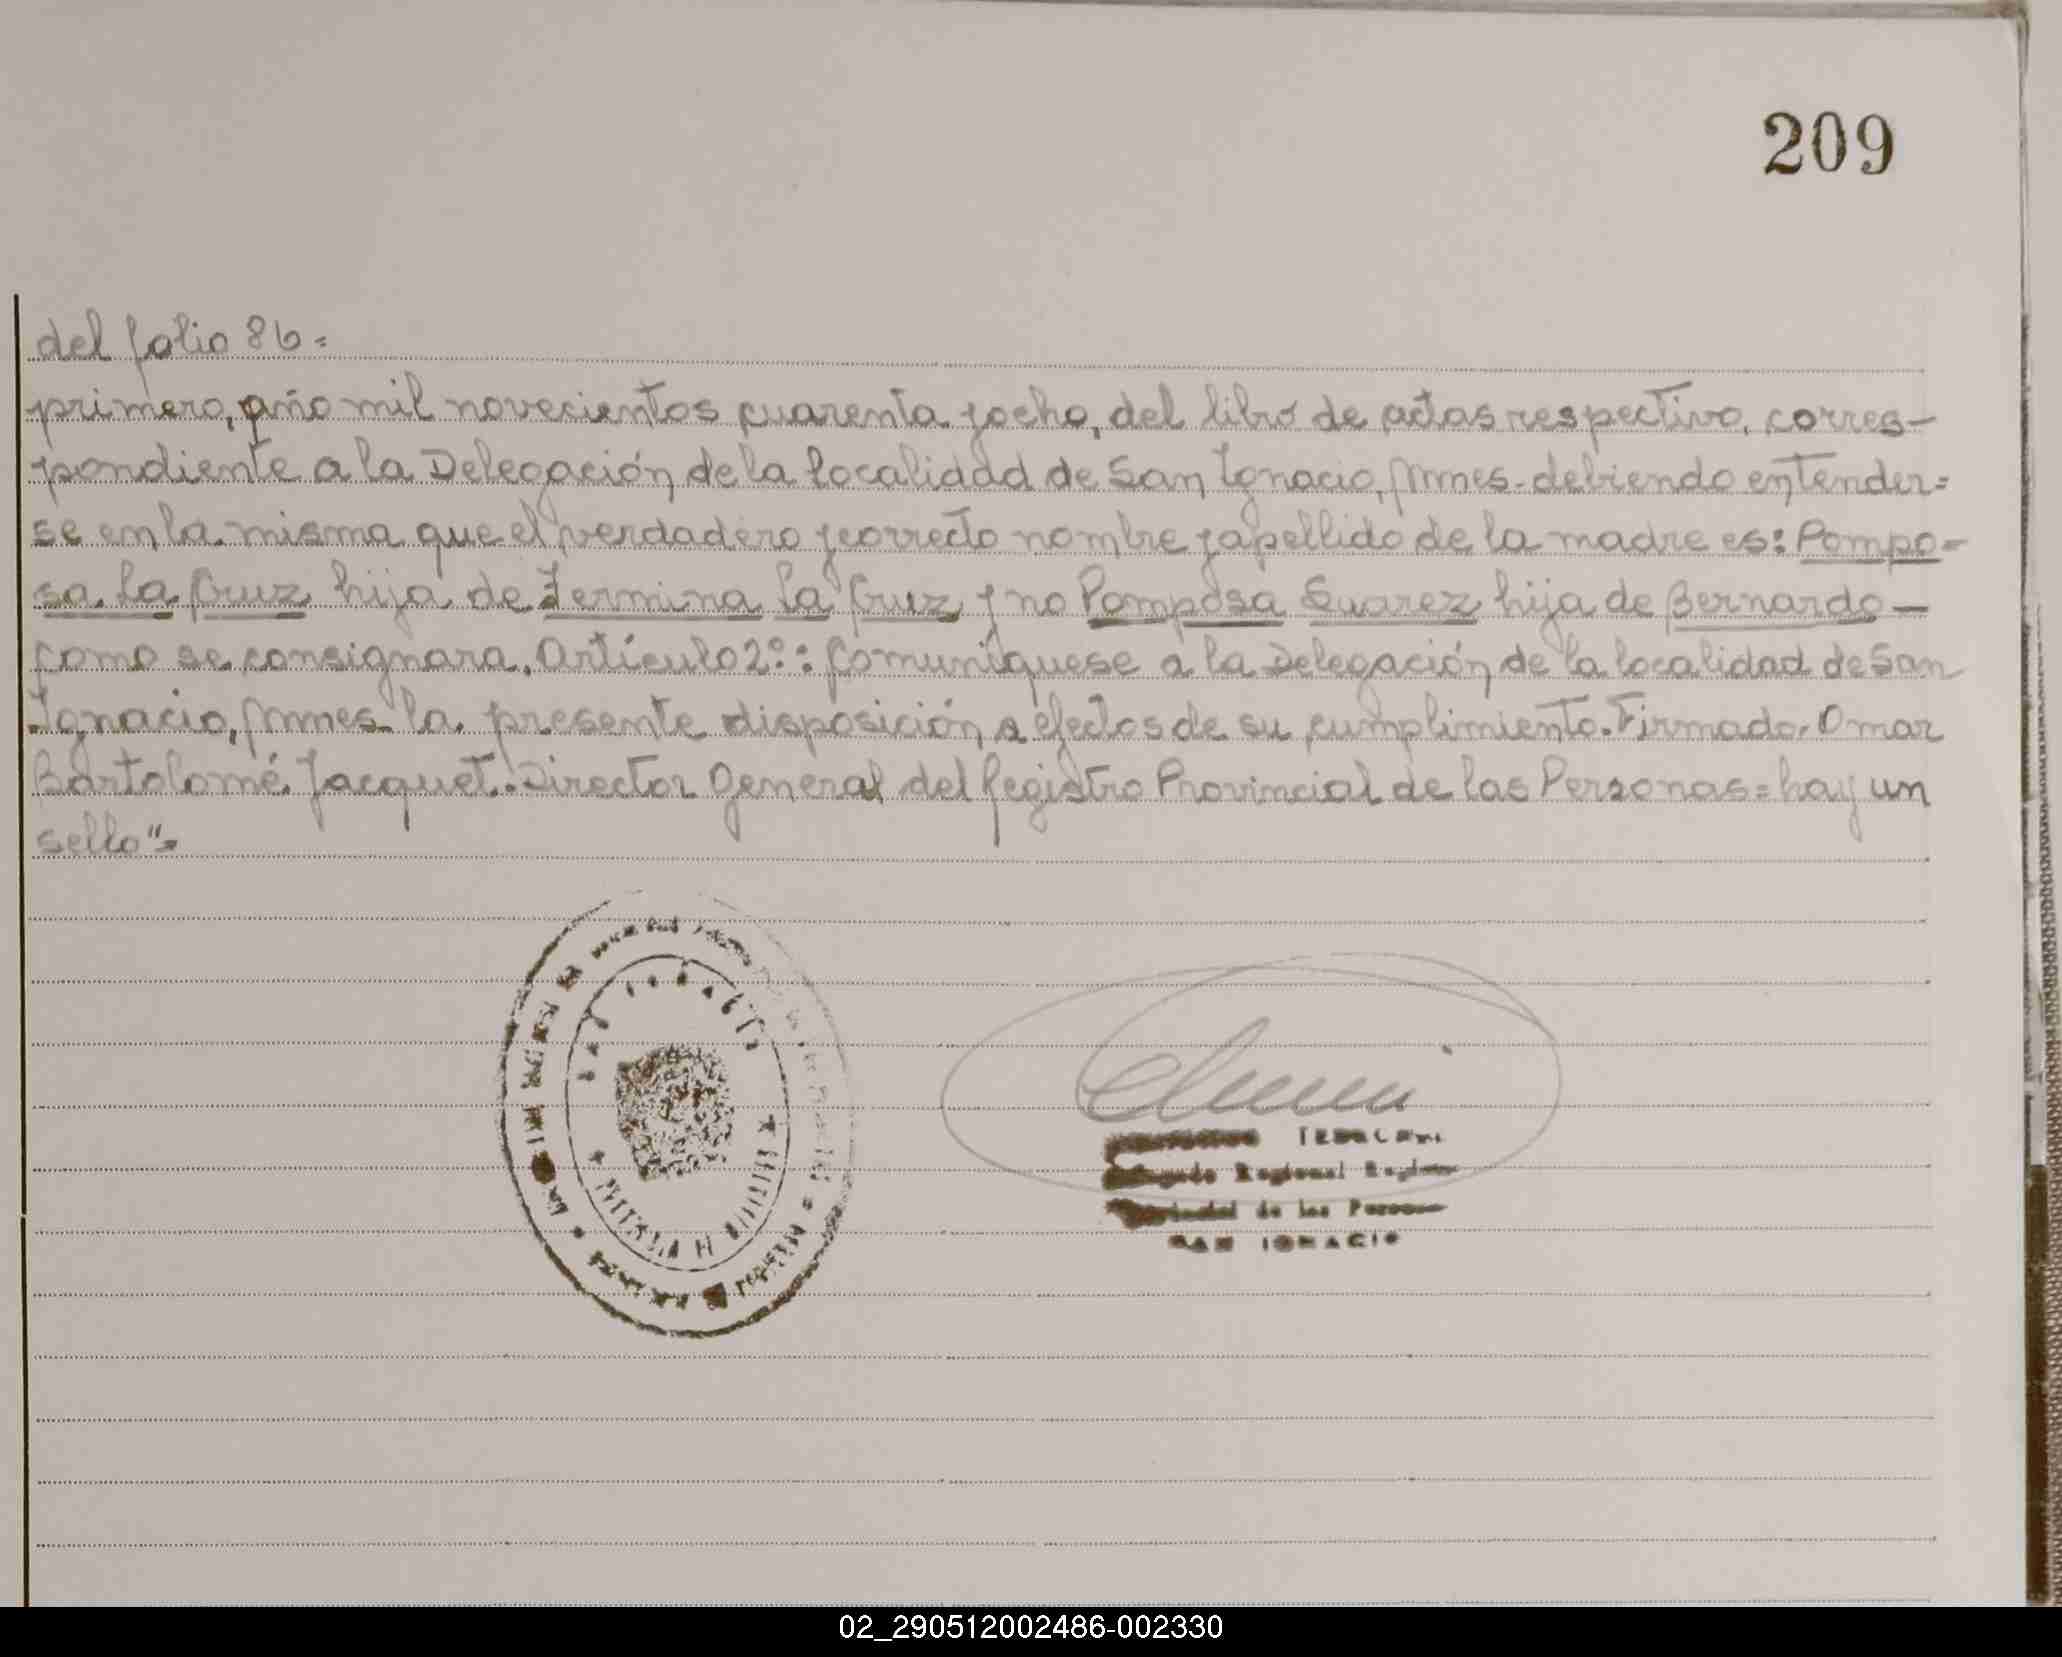 209
del folio 86=
primero, año mil novecientos cuarenta y ocho, del libro de actas respectivo, corres-
pondiente a la Delegación de la localidad de San Ignacio, Mnes. debiendo entender=
se en la misma que el verdadero y correcto nombre y apellido de la madre es: Pompo=
sa La Cruz hija de Fermina La Cruz y no Pomposa Suarez hija de Bernardo-
como se consignara. Artículo 2º: Comuníquese a la Delegación de la localidad de San
Ignacio, Mnes la presente disposición a efectos de su cumplimiento. Firmado. Omar
Bartolomé Jacquet. Director General del Registro Provincial de las Personas= hay un
sello"=
Regional
de las
SAN IGNACIO
02_290512002486-002330